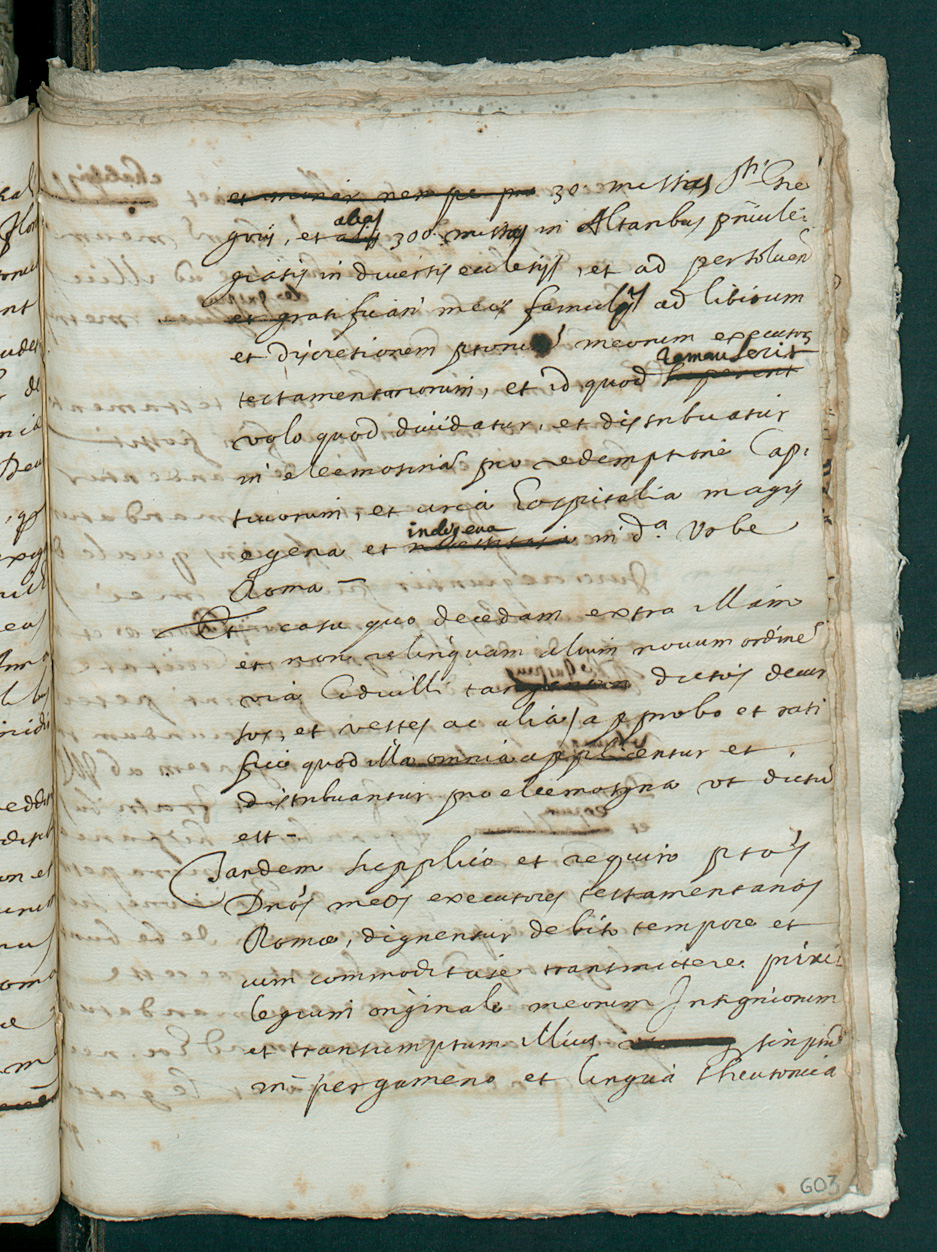 et minor nempe pro 30 missas Sti Gre
gorij, et alias 300 missas in Altaribus priuile-
giatis in diuersis ecclesijs, et ad persoluen
et gratifican meis famulis ad libitum
et discretionem meorum executor
testamentariorum, et id quod remanserit
volo quod diuidatur, et distribuatur
in eleemosinas pro redemptione Cap-
tiuorum, et circa hospitalia magis
egena et indigena in d.a Vrbe
Roma
Et casu quo decedam extra illam
et non relinquam alium nouum ordinē
dictos
sos, et vestes ac alia approbo et rati
fico quod illa omnia applicentur et
distribuantur pro eleemosyna vt dictū
est -
Tandem supplico et requiro ptos
Dnos meos executores testamentarios
Romæ, dignentur debito tempore et
cum commoditate transmittere priui-
legium originale meorum Insigniorum
et transumptum illius
in pergameno et lingua theutonica
603